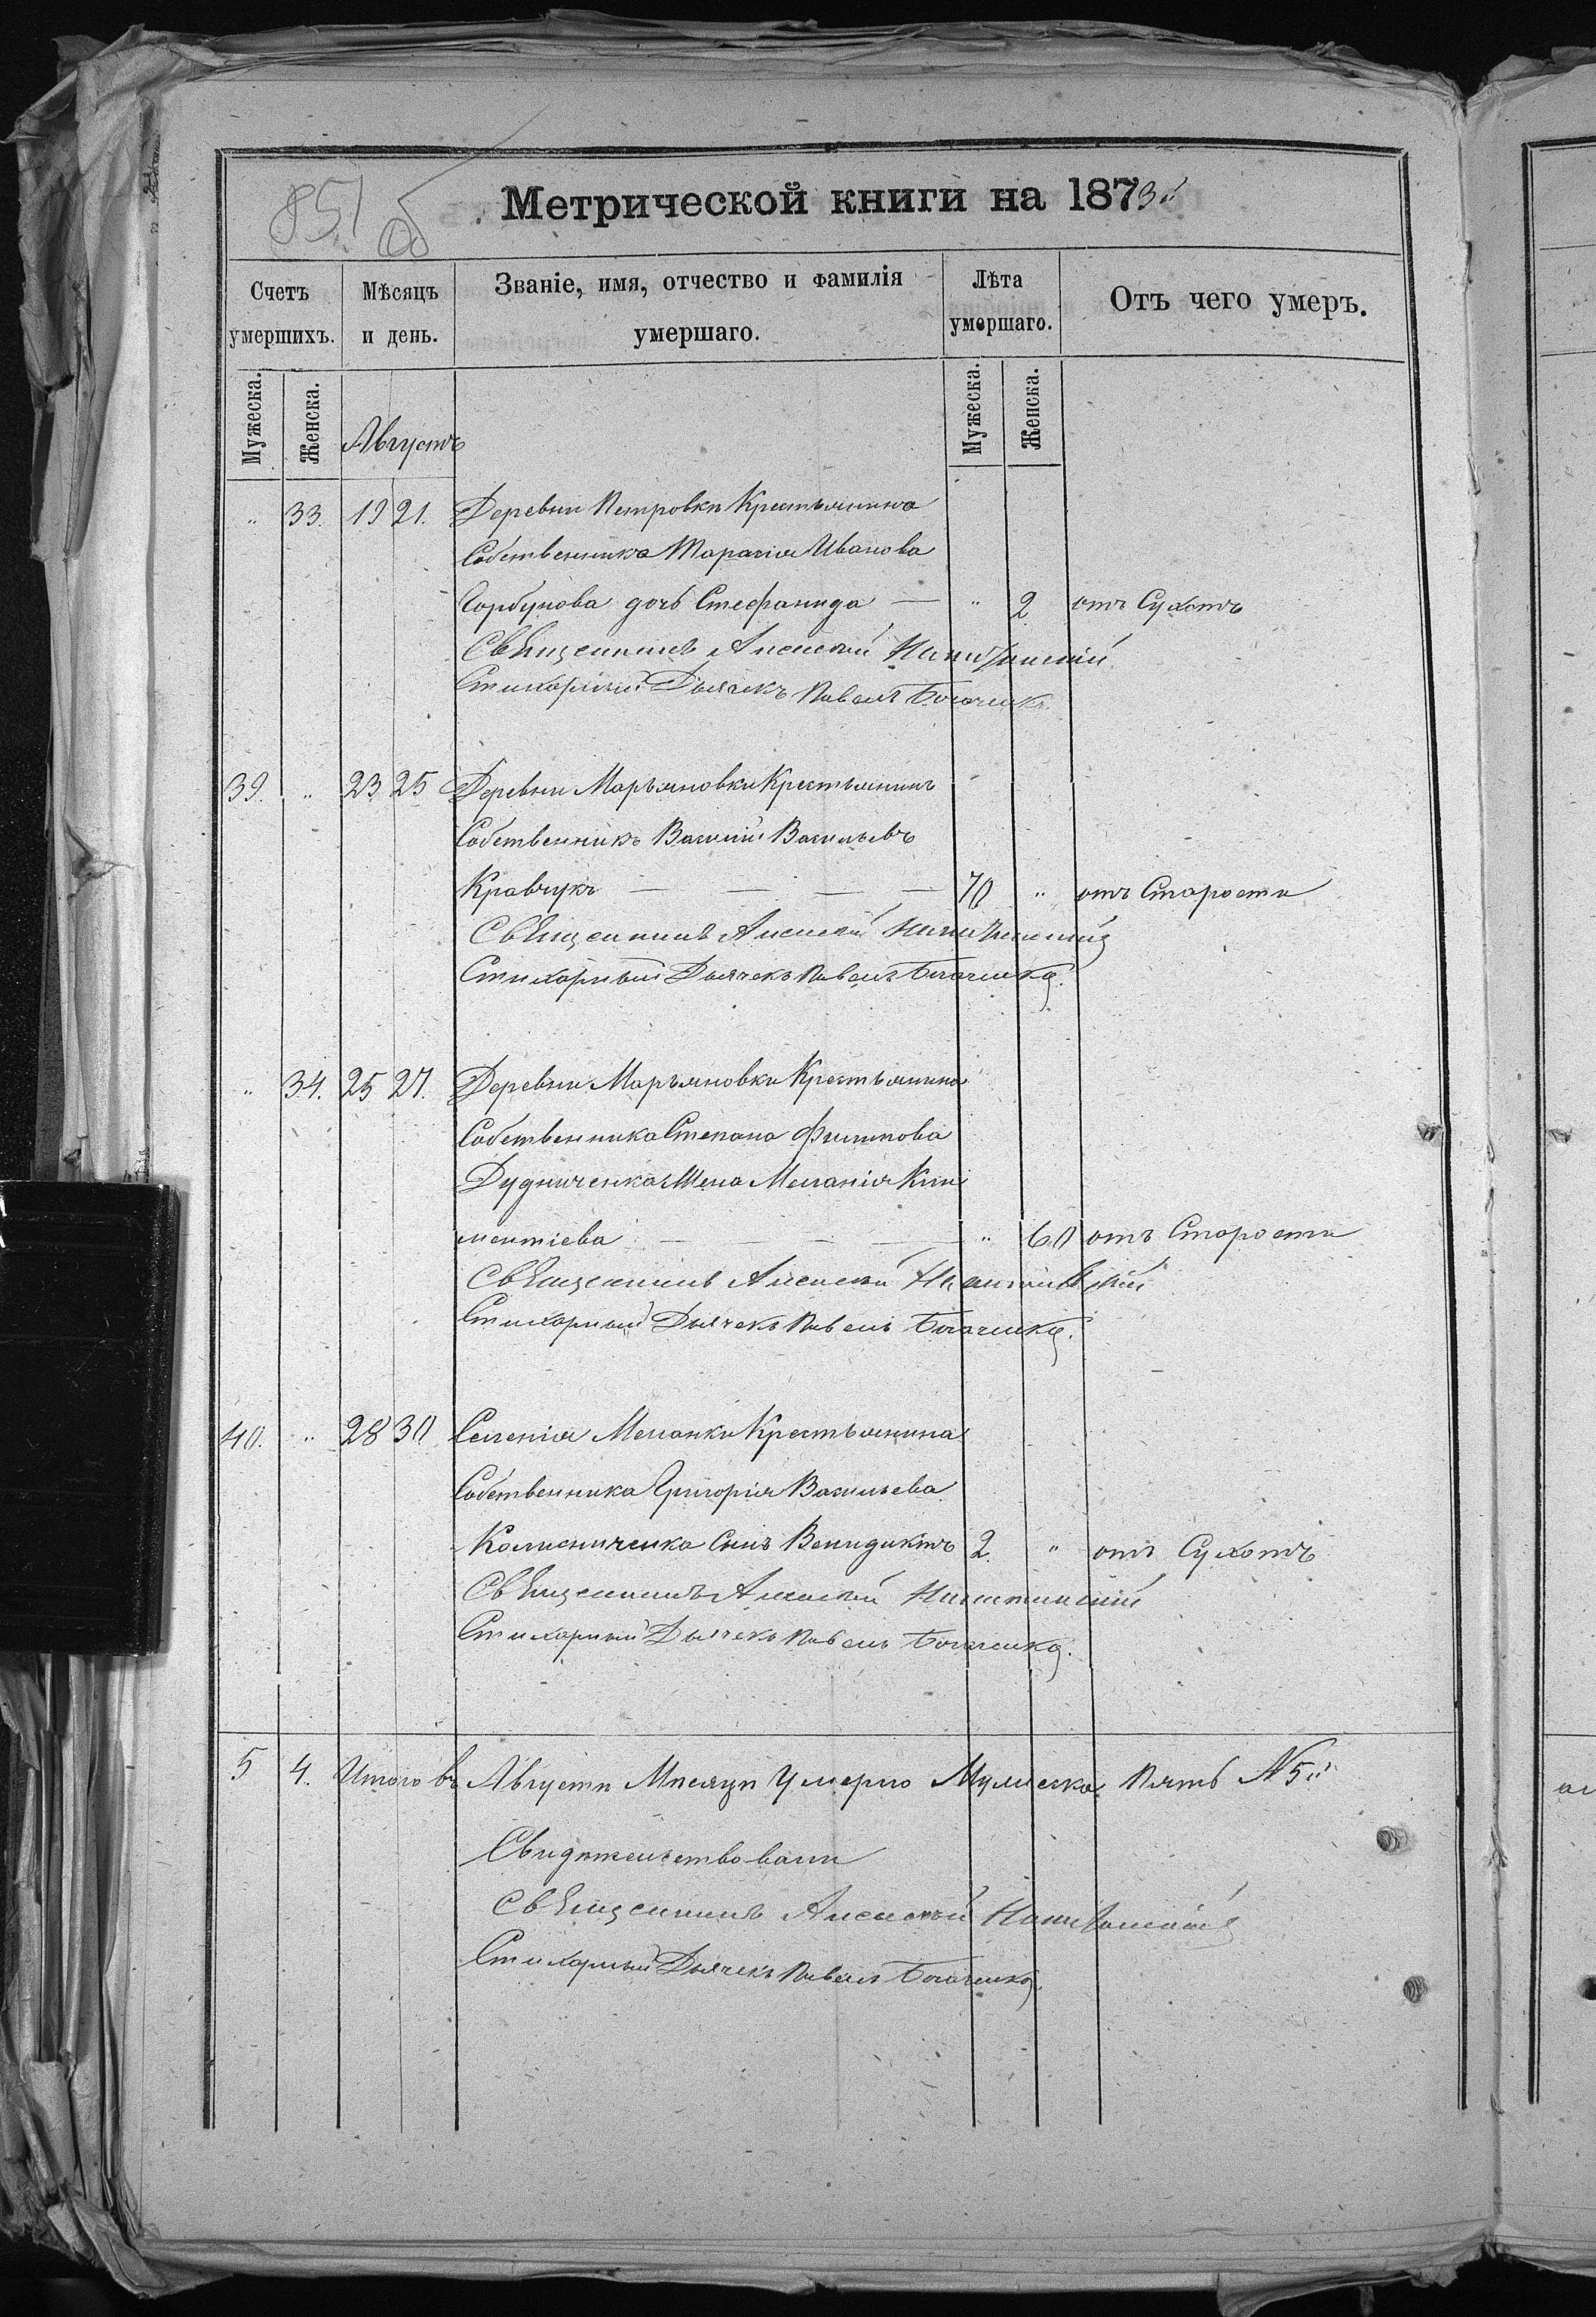 851 об
Метрической книги на 1873й
Счетъ умершихъ.
Мѣсяцъ и день.
Званіе, имя, отчество и фамилія умершаго.
Лѣта умершаго.
Отъ чего умеръ.
Мужеска. Женска. Августъ Мужеска. Женска.
" 33. 19 21. Деревни Петровки Крестьянина
Собственника Тарасія Иванова
Горбунова дочь Стефанида — " 2 отъ Сухотъ
Священникъ Алексѣй
Стихарный Дьячекъ Павелъ
39. " 23 25 Деревни Марьяновки Крестьянинъ
Собственникъ Василій Васильевъ
Кравчукъ — — — — 70 " отъ Старости
Священникъ Алексѣй
Стихарный Дьячекъ Павелъ
" 34. 25 27. Деревни Марьяновки Крестьянина
Собственника Степана Филипова
Дудниченка Жена Меланія Кли
ментіева — — — — " 60 отъ Старости
Священникъ Алексѣй
Стихарный Дьячекъ Павелъ
40. " 28 30 Селенія Меланки Крестьянина
Собственника Григорія Васильева
Колисниченка Сынъ Венидиктъ 2. " отъ Сухотъ
Священникъ Алексѣй
Стихарный Дьячекъ Павелъ
5 4. Итого въ Августѣ Мѣсяцѣ Умерло Мужеска Пять № 5й
Свидѣтельствовали
Священникъ Алексѣй
Стихарный Дьячекъ Павелъ